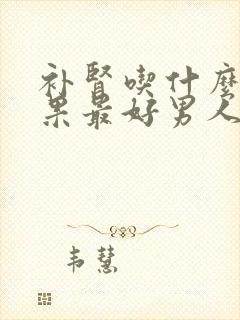 补腎喫什麼
果最好男人
韦慧